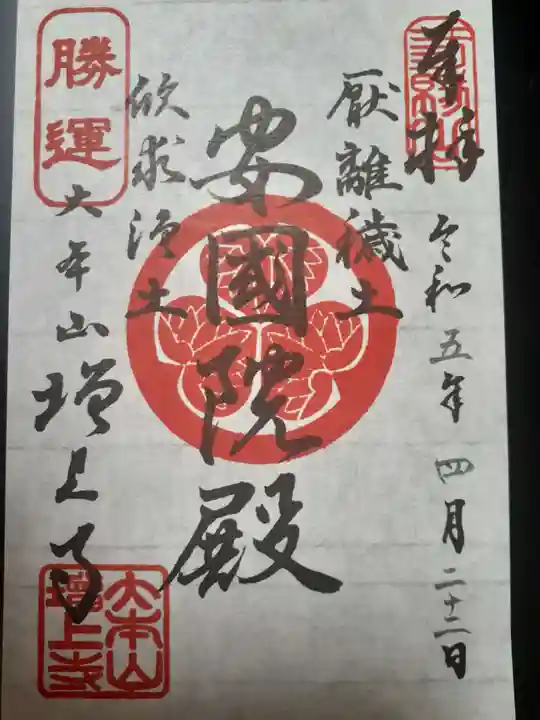 奉拝
令和五年四月二十二日
厭離穢土
安國院殿
欣求淨土
勝運
大本山増上寺
大本山
増上寺